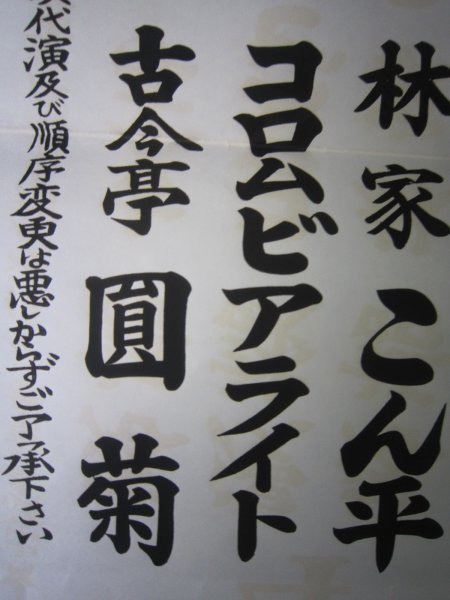 林家こん平
コロムビアライト
古今亭圓菊
代演及び順序変更は悪しからずご了承下さい